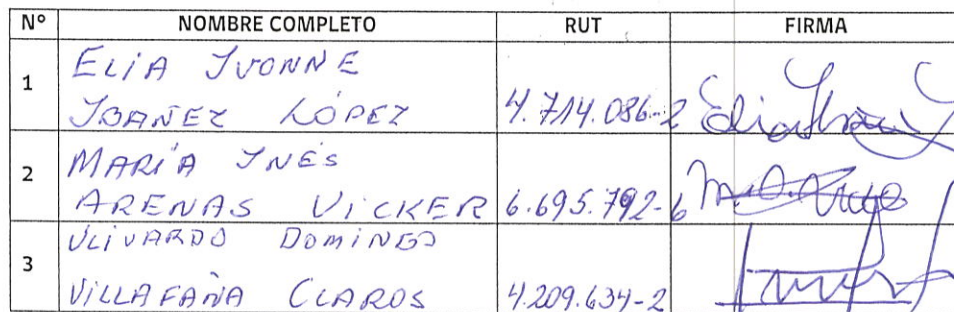 N° NOMBRE COMPLETO RUT FIRMA
1 ELIA IVONNE
IBAÑEZ LÓPEZ 4.714.086-2
2 MARÍA INÉS
ARENAS VICKER 6.695.792-6
3 ULIVARDO DOMINGO
VILLAFAÑA CLAROS 4.209.634-2